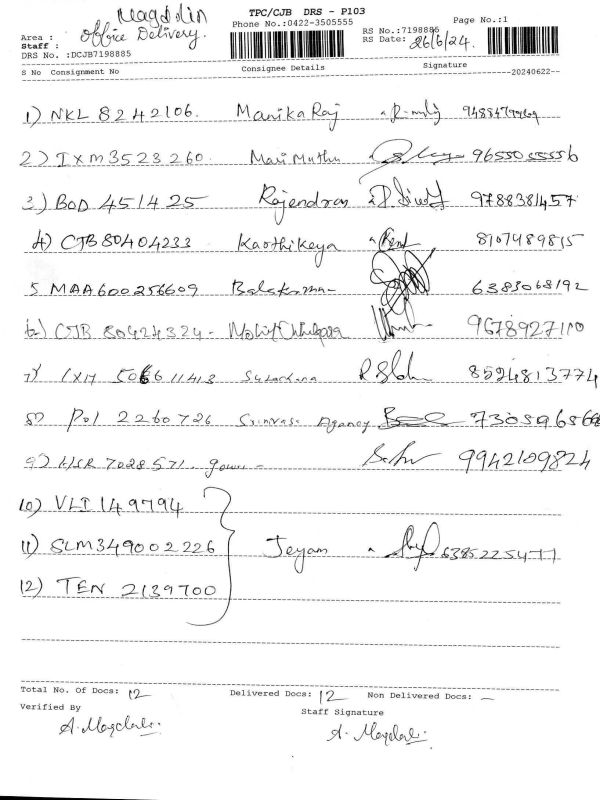 Magdolin
Office Delivery.
TPC/CJB DRS - P103
Phone No.:0422-3505555
Page No.:1
Area :
Staff :
DRS No. :DCJB7198885
RS No.:7198885
RS Date: 26/6/24.
S No Consignment No Consignee Details Signature
20240622--
1) NKL 8242106. Manika Raj 948547
2) IXM3523260. Mari Muthu 9655055556
3) BOD 451425 Rajendran 9788381457
4) CJB80404233 Karthikeya 8107989815
5. MAA600256609 6383068192
6) CJB 80424324 - Mohit 9678927110
7) IXM 506611413 8524813774
8) POI 2260726 Srinivasa Agency
9) HSR 7028571. 9942109824
10) VLI 149794
11) SLM349002226 Jeyam 6385225477
12) TEN 2139700
Total No. Of Docs: 12 Delivered Docs: 12 Non Delivered Docs: -
Verified By Staff Signature
A. Magdali. A. Magdali.